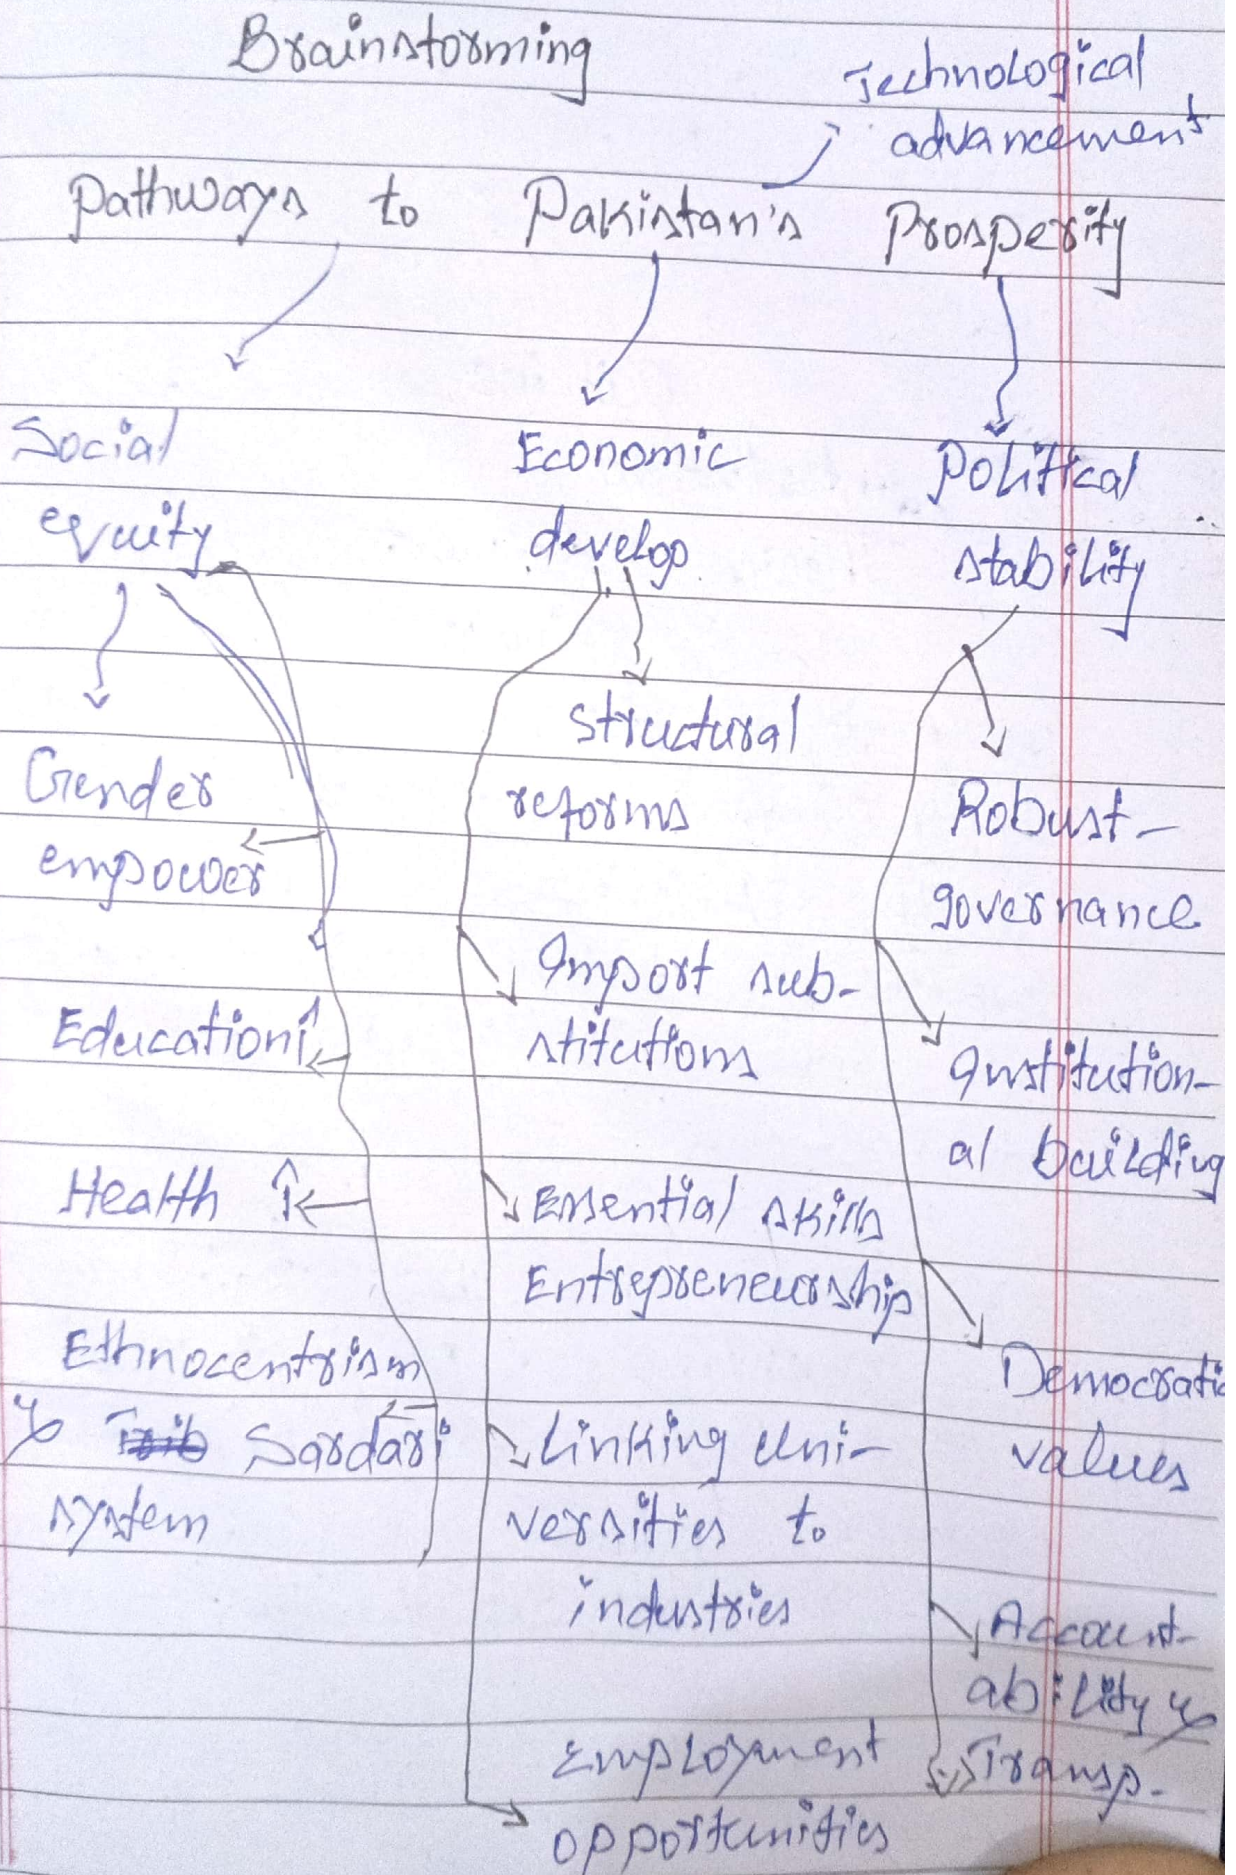 Brainstorming
Technological
advancement
Pathways to Pakistan's Prosperity
Social
equity
Gender
empower
Education↑
Health ↑
Ethnocentrism
& Sardari
system
Economic
develop
structural
reforms
Import sub-
stitutions
Essential skills
Entrepreneurship
Linking uni-
versities to
industries
Employment
opportunities
Political
stability
Robust-
governance
Institution-
al building
Democratic
values
Account-
ability &
Transp.